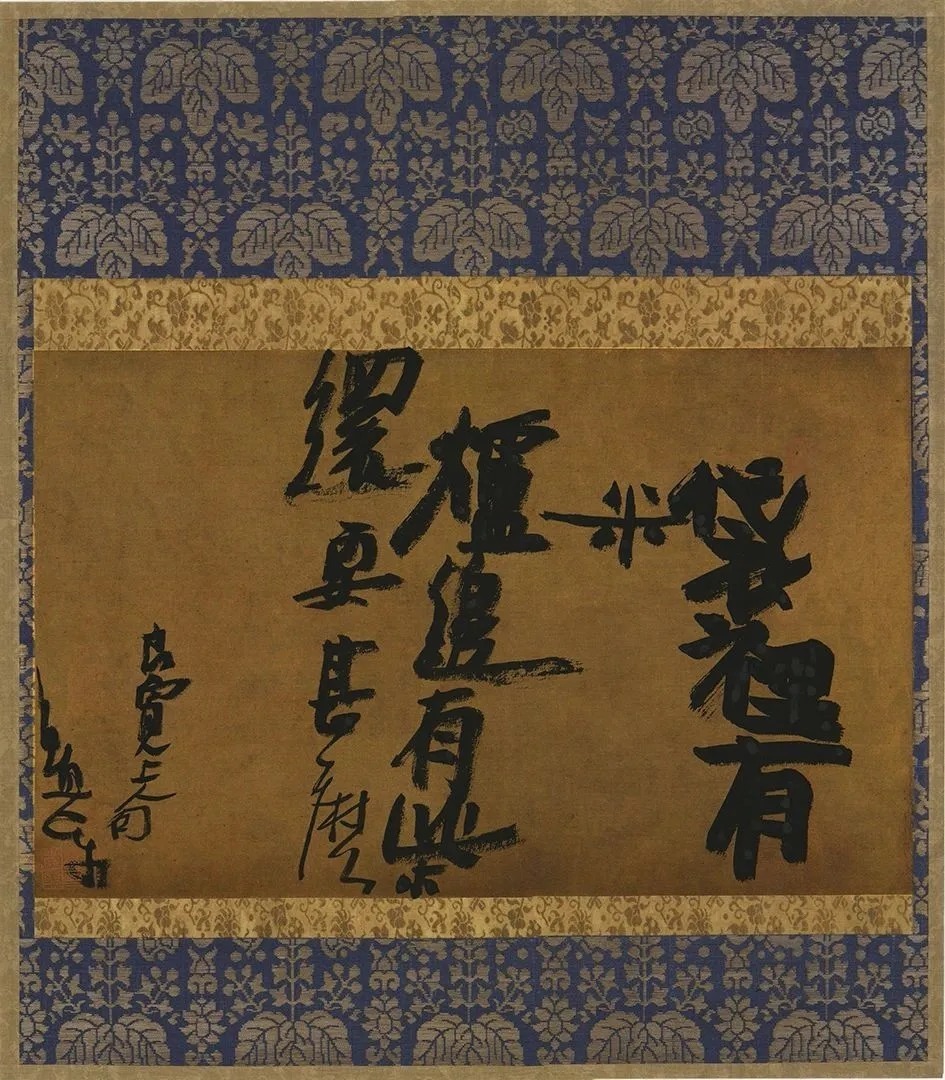 袋裡有
米
爐邊有柴
還要甚麼
良寬上句